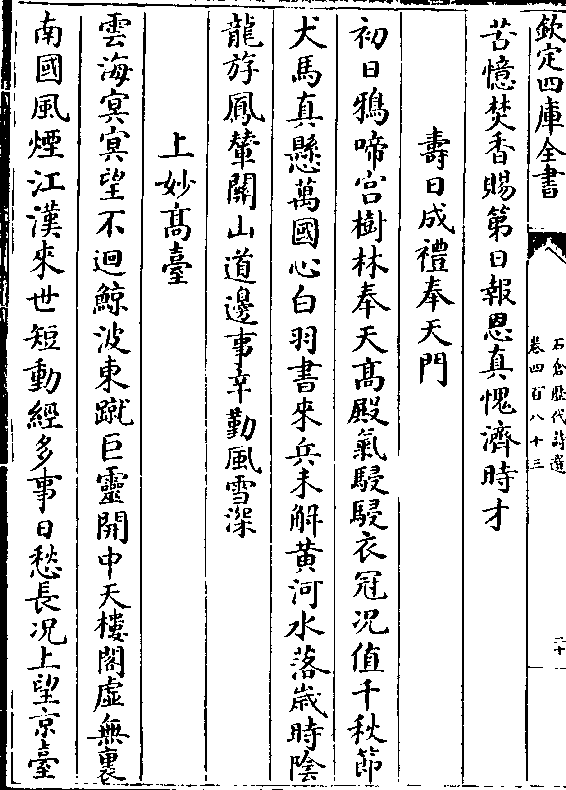 欽定四庫全書
石倉歷代詩選
卷四百八十三
二十
苦憶焚香賜第日報恩真愧濟時才
壽日成禮奉天門
初日鴉啼宮樹林奉天高殿氣駸駸衣冠況值千秋節
犬馬真懸萬國心白羽書來兵未解黃河水落歲時陰
龍斿鳳輦關山道邊事辛勤風雪深
上妙高臺
雲海冥冥望不迴鯨波東蹴巨靈開中天樓閣虛無裏
南國風煙江漢來世短動經多事日愁長況上望京臺